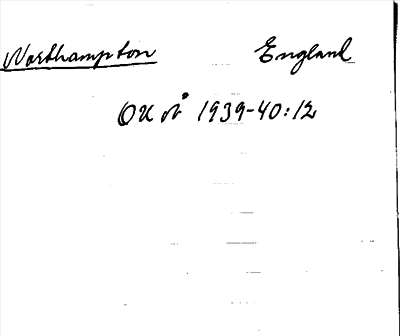 Northampton England
OU N° 1939-40:12